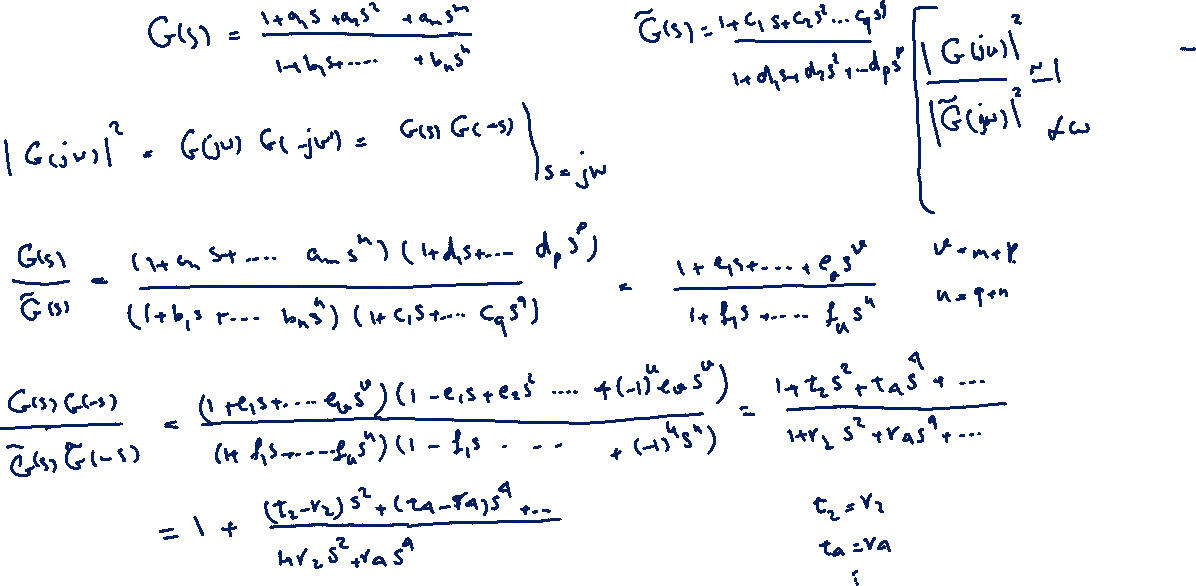 G(s) = (1+a₁s+a₂s² +aₘsᵐ)/(1+b₁s+.... +bₙsⁿ)
G̃(s) = (1+c₁s+c₂s²...c_q s^q)/(1+d₁s+d₂s²+...d_p s^p)
|G(jω)|²/|G̃(jω)|² ≅ 1 ∠ω
|G(jω)|² = G(jω) G(-jω) = G(s) G(-s)|s=jω
G(s)/G̃(s) = (1+a₁s+.... aₘsᵐ)(1+d₁s+... d_p s^p)/((1+b₁s+... bₙsⁿ)(1+c₁s+... c_q s^q)) = (1+e₁s+...+eᵥsᵛ)/(1+f₁s+.... fᵤsᵘ)
v=m+p
u=q+n
G(s)G(-s)/(G̃(s)G̃(-s)) = (1+e₁s+....eᵥsᵛ)(1-e₁s+e₂s² .... +(-1)ᵛeᵥsᵛ)/((1+f₁s+....fᵤsᵘ)(1-f₁s ... +(-1)ᵘsᵘ)) = (1+t₂s²+t₄s⁴+...)/(1+r₂s²+r₄s⁴+...)
= 1 + ((t₂-r₂)s²+(t₄-r₄)s⁴+...)/(1+r₂s²+r₄s⁴)
t₂=r₂
t₄=r₄
⋮